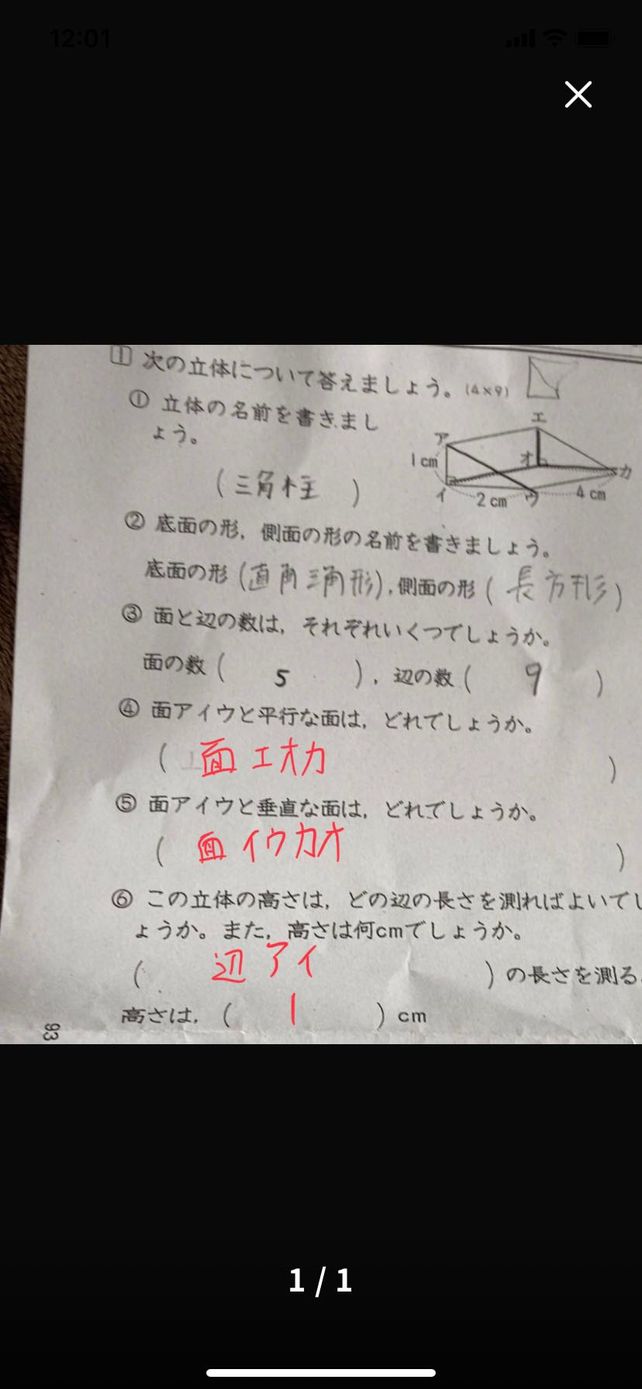 12:01
1 次の立体について答えましょう。(4×9)
① 立体の名前を書きまし
ょう。
(三角柱)
ア
エ
オ
カ
イ
ウ
1cm
2cm
4cm
② 底面の形，側面の形の名前を書きましょう。
底面の形(直角三角形),側面の形(長方形)
③ 面と辺の数は，それぞれいくつでしょうか。
面の数( 5 )，辺の数( 9 )
④ 面アイウと平行な面は，どれでしょうか。
( 面エオカ )
⑤ 面アイウと垂直な面は，どれでしょうか。
( 面イウカオ )
⑥ この立体の高さは，どの辺の長さを測ればよいでし
ょうか。また，高さは何cmでしょうか。
( 辺アイ )の長さを測る
高さは，( 1 )cm
93
1 / 1